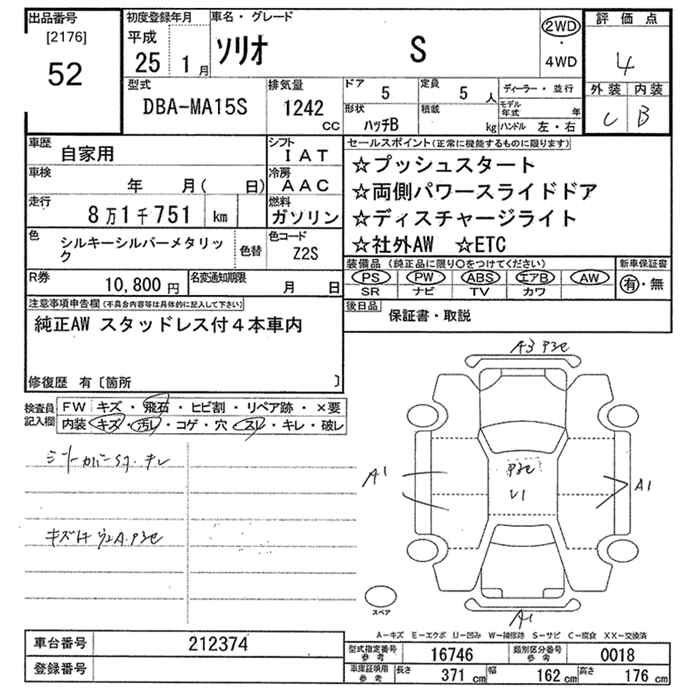 出品番号
[2176]
52
初度登録年月
平成
25 1月
車名・グレード
ソリオ S
2WD
・
4WD
評価点
4
外装 内装
C B
型式
DBA-MA15S
排気量
1242
cc
ドア
5
定員
5 人
形状
ハッチB
積載
kg
ディーラー・並行
モデル年式 年
ハンドル 左・右
車歴
自家用
シフト
IAT
車検
年 月( 日)
冷房
AAC
走行
8万1千751 km
燃料
ガソリン
色
シルキーシルバーメタリック
色替
色コード
Z2S
R券
10,800円
名変通知期限
月 日
セールスポイント(正常に機能するものに限ります)
☆プッシュスタート
☆両側パワースライドドア
☆ディスチャージライト
☆社外AW ☆ETC
装備品(純正品に限り○をつけてください)
PS PW ABS エアB AW
SR ナビ TV カワ
新車保証書
有・無
後日品
保証書・取説
注意事項申告欄(不具合内容等は具体的に記入して下さい)
純正AW スタッドレス付4本車内
修復歴 有〔箇所 〕
検査員記入欄
FW キズ・飛石・ヒビ割・リペア跡・×要
内装 キズ・汚レ・コゲ・穴・スレ・キレ・破レ
A3
A1
A1
A1
スペア
A-キズ E-エクボ U-凹み W-補修跡 S-サビ C-腐食 XX-交換済
車台番号
212374
登録番号
型式指定番号
参考
16746
類別区分番号
参考
0018
車庫証明用
参考
長さ
371 cm
幅
162 cm
高さ
176 cm